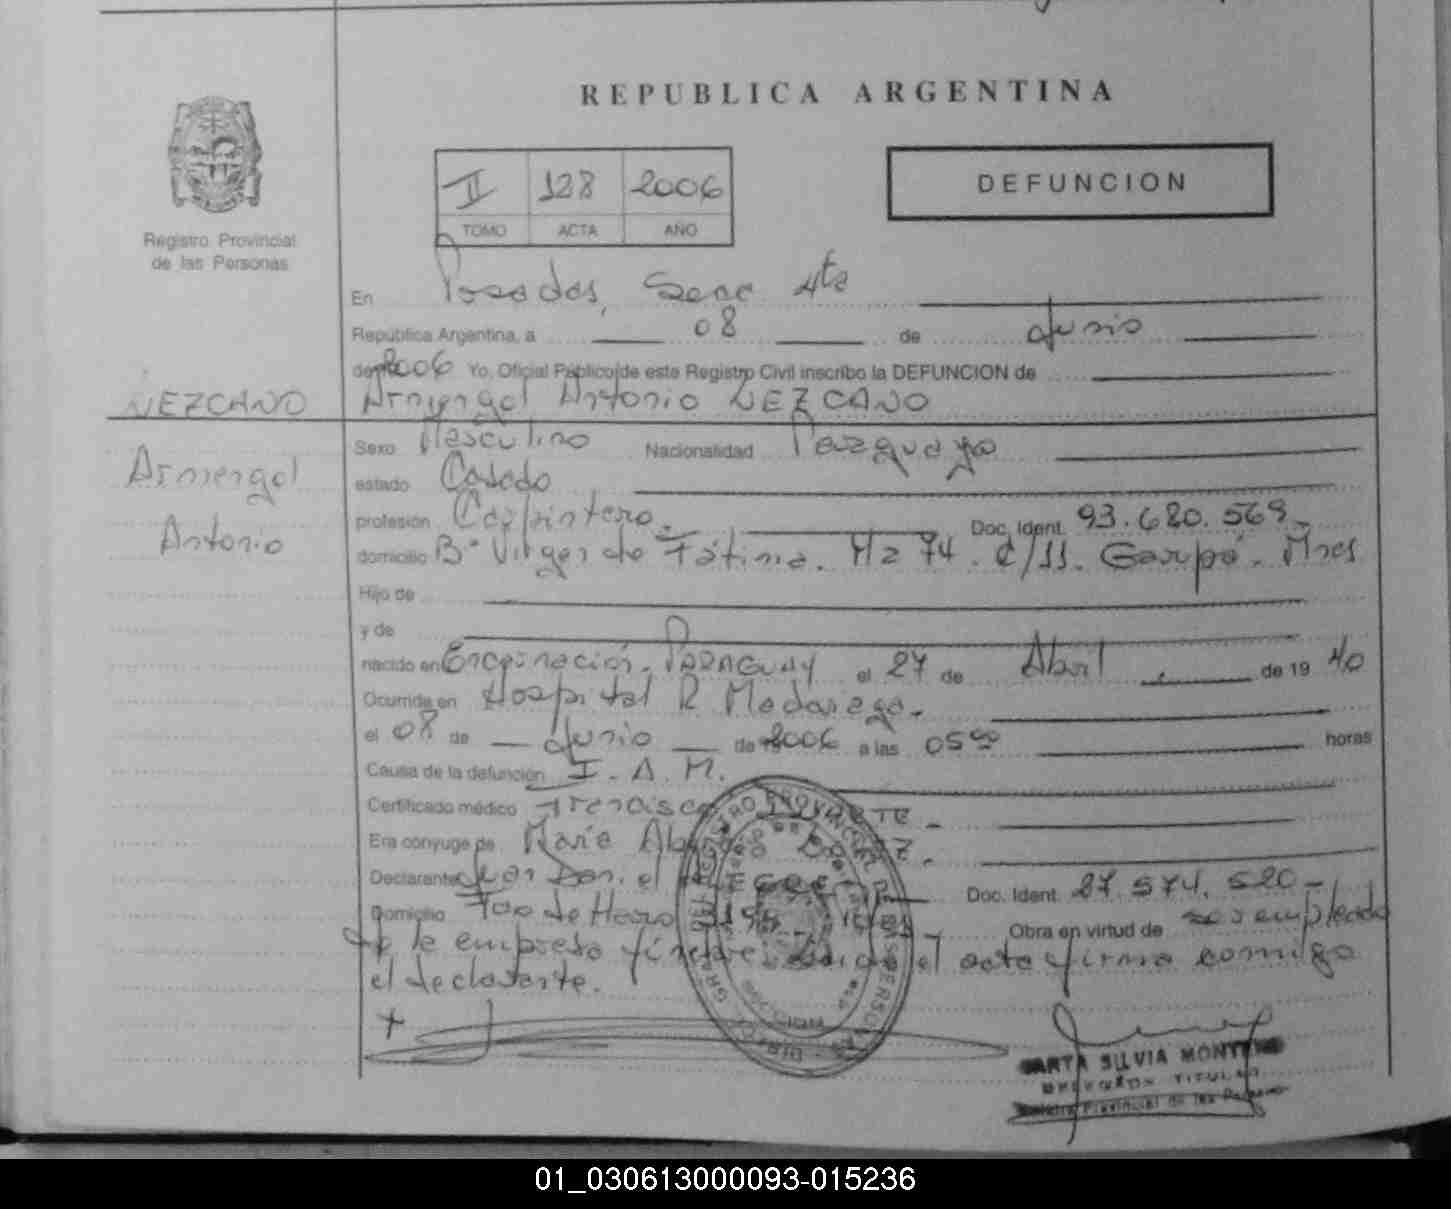 REPUBLICA ARGENTINA
Registro Provincial
de las Personas
II 128 2006
TOMO ACTA AÑO
DEFUNCION
En Posadas, Secc 4ta
República Argentina, a 08 de Junio
de 2006 Yo, Oficial Público de este Registro Civil inscribo la DEFUNCION de
NEZCANO
Armengol Antonio NEZCANO
Armengol
Antonio
Sexo Masculino Nacionalidad Paraguaya
estado Casado
profesión Carpintero. Doc. Ident. 93.680.569
domicilio Bº Virgen de Fátima. Mz 74. C/11. Garupá. Mnes
Hijo de
y de
nacido en Encarnación. PARAGUAY el 27 de Abril de 19 40
Ocurrida en Hospital R Madariaga.
el 08 de Junio de 2006 a las 05 00 horas
Causa de la defunción I.A.M.
Certificado médico
Era cónyuge de María
Declarante Doc. Ident. 27.574.520
Domicilio Obra en virtud de ser empleado
de la empresa el acta firma conmigo
el declarante.
MARTA SILVIA
TITULAR
Registro Provincial de las Personas
01_030613000093-015236